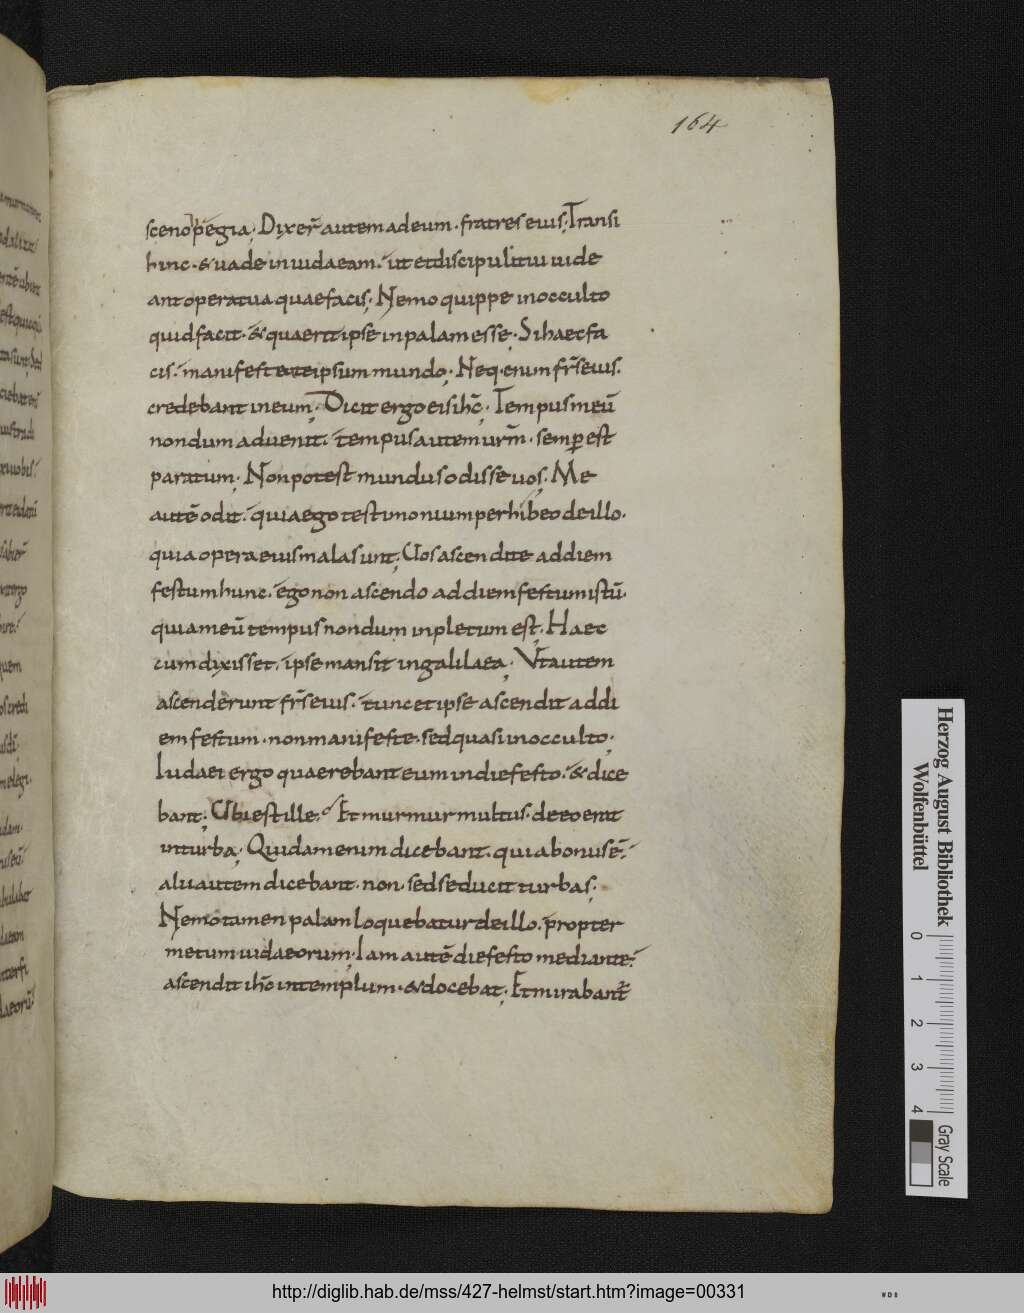 164
scenopegia; Dixer̄ autem ad eum · fratres eius; Transi
hinc · & uade in iudaeam · ut et discipuli tui uide
ant opera tua quae facis; Nemo quippe in occulto
quid facit · & quaerit ipse in palam esse; Si haec fa
cis · manifesta te ipsum mundo; Neq· enim fr̄s eius ·
credebant in eum; Dicit ergo eis ih̄c; Tempus meū
nondum aduenit · tempus autem ur̄m · semper est
paratum; Non potest mundus odisse uos; Me
autē odit · quia ego testimonium perhibeo de illo ·
quia opera eius mala sunt; Uos ascendite ad diem
festum hunc · ego non ascendo ad diem festum istū ·
quia meū tempus nondum inpletum est; Haec
cum dixisset · ipse mansit in galilaea; Vt autem
ascenderunt fr̄s eius · tunc et ipse ascendit ad di
em festum · non manifeste · sed quasi in occulto;
Iudaei ergo quaerebant eum in die festo · & dice
bant; Ubi est ille? Et murmur multus · de eo erat
in turba; Quidam enim dicebant · quia bonus ē ·
alii autem dicebant · non · sed seducit turbas;
Nemo tamen palam loquebatur de illo · propter
metum iudaeorum; Iam autē die festo mediante ·
ascendit ih̄c in templum · & docebat; Et mirabant̄
Herzog August Bibliothek
Wolfenbüttel
0 1 2 3 4
Gray Scale
http://diglib.hab.de/mss/427-helmst/start.htm?image=00331